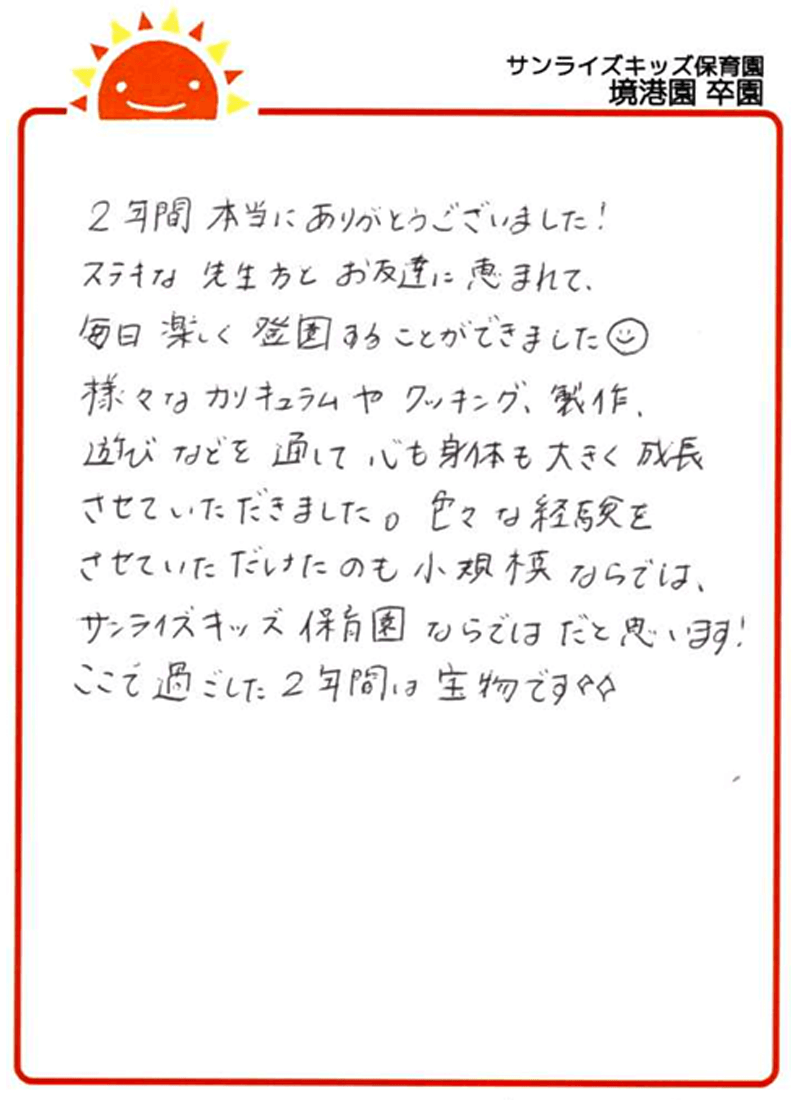 サンライズキッズ保育園
境港園 卒園
2年間 本当にありがとうございました!
ステキな 先生方と お友達に 恵まれて、
毎日 楽しく 登園することができました☺
様々な カリキュラムや クッキング、製作、
遊び などを 通して 心も身体も大きく成長
させていただきました。色々な経験を
させていただけたのも 小規模 ならでは、
サンライズキッズ 保育園 ならではだと思います!
ここで 過ごした2年間は 宝物です✧✧